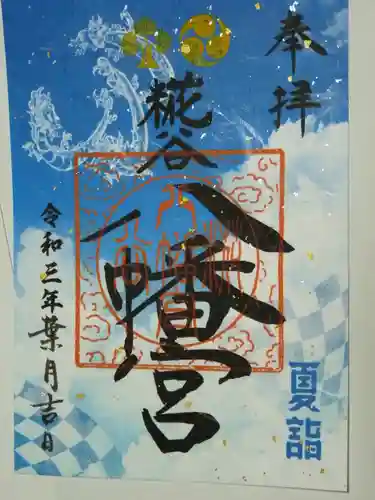 奉拝
糀谷
八幡宮
令和三年葉月吉日
夏詣